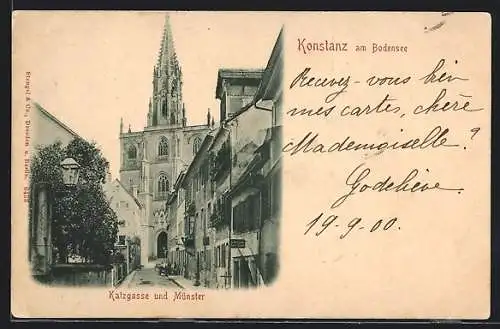 Konstanz am Bodensee
Recevez-vous bien
mes cartes, chère
Mademoiselle?
Godelième.
19-9-00.
Katzgasse und Münster
Stengel & Co., Dresden u. Berlin.